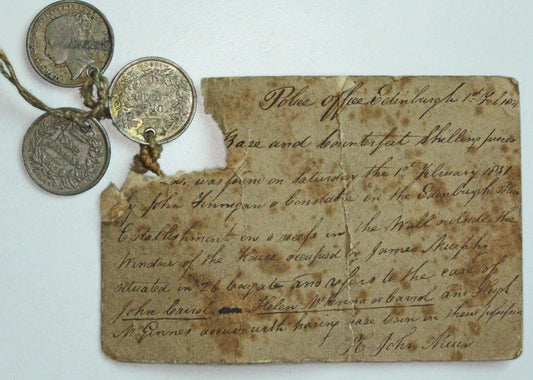 Police Office Edinburgh 1st Feb 18
Base and Counterfeit Shilling pieces
was found on Saturday the 1st February 1851
by John Finnigan a Constable in the Edinburgh Police
Establishment in a recess in the Wall outside the
Window of the House occupied by James Murphy
situated in 26 Cowgate and refers to the case of
John Caird Helen McKenna or Caird and Hugh
McGinnes accused with having base Coin in their possession
John Muir
ONE
SHILLING